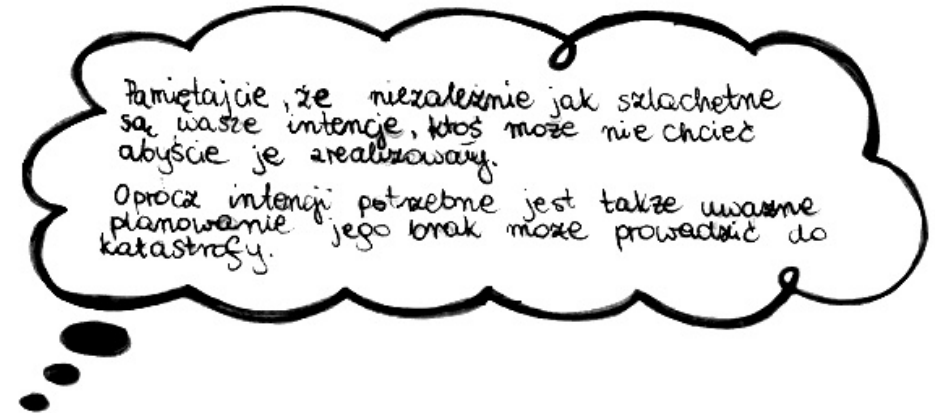 Pamiętajcie, że niezależnie jak szlachetne
są wasze intencje, ktoś może nie chcieć
abyście je zrealizowały.
Oprócz intencji potrzebne jest także uważne
planowanie jego brak może prowadzić do
katastrofy.